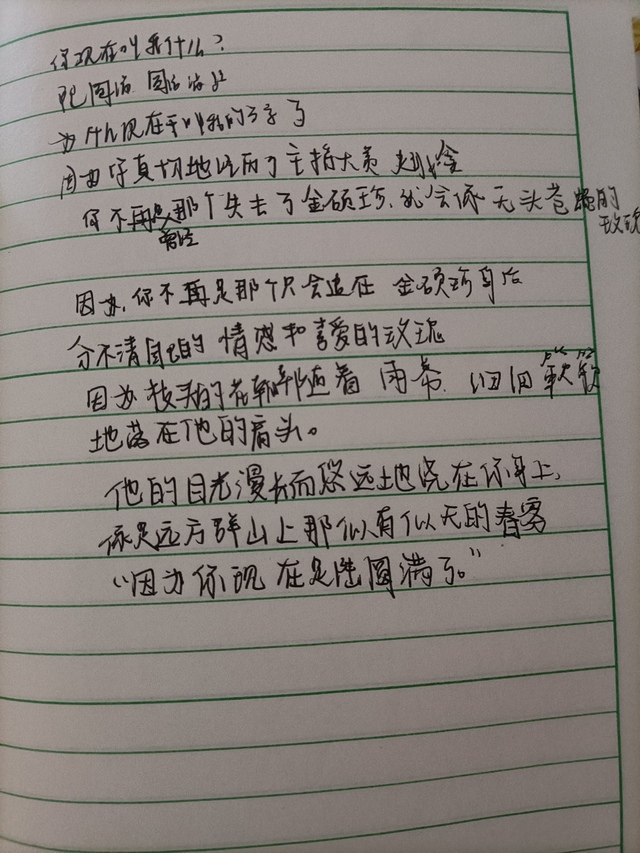 你现在叫我什么?
陆圆满 圆满
为什么现在不叫我的名字了
因为你真切地经历了主持大局
你不再是那个曾经失去了金硕珍,就会像无头苍蝇的玫瑰
因为,你不再是那个只会追在金硕珍身后
分不清自己的情感和喜爱的玫瑰
因为枝头的花瓣伴随着雨幕,
地落在他的肩头。
他的目光漫长而悠远地绕在你身上,
像是远方群山上那似有似无的春雾
“因为你现在是陆圆满了。”